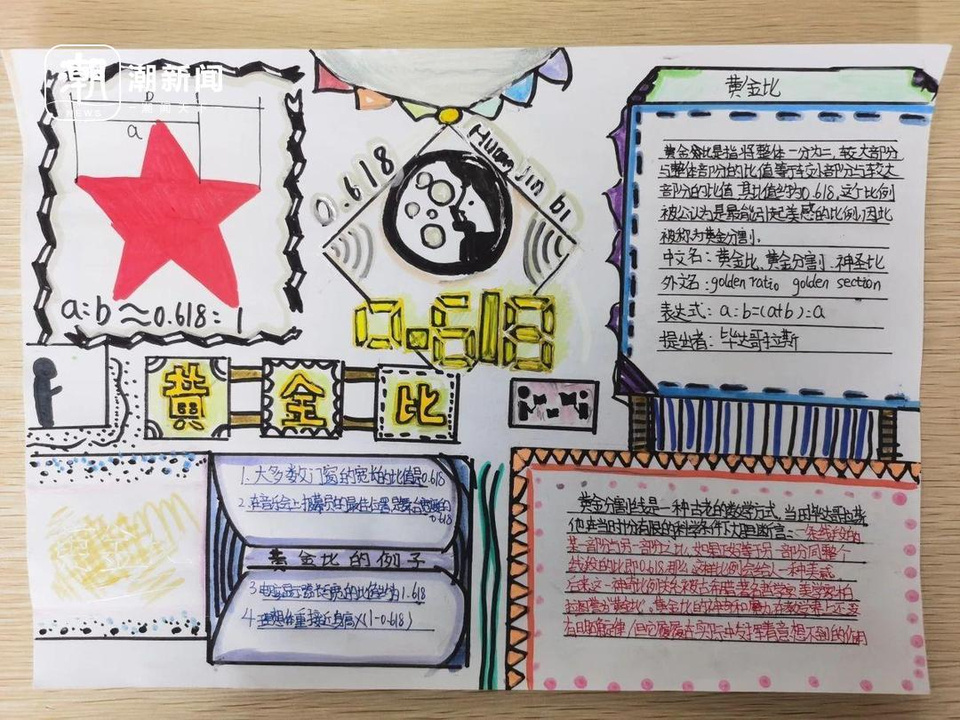 潮新闻
NEWS
b
a
a:b≈0.618:1
0.618
Huang jin bi
0.618
黄金比
黄金比
黄金分比是指将整体一分为二,较大部分
与整体部分的比值等于较小部分与较大
部分的比值,其比值约为0.618,这个比例
被公认为是最能引起美感的比例,因此
被称为黄金分割.
中文名:黄金比、黄金分割、神圣比
外文名:golden ratio golden section
表达式:a:b=(a+b):a
提出者:毕达哥拉斯
1、大多数门窗的宽长的比值是0.618
2、在音乐会上报幕员的最佳位置是舞台宽度的
0.618
黄金比的例子
3 电视屏 长与宽的比值约为1.618
4 理想体重接近身高×(1-0.618)
黄金分割比线是一种古老的数学方式。当
他在当时十分有限的科学条件下大胆断言:一条线段的
某一部分与另一部分之比,如果正好等于另一部分同整个
线段的比即0.618,那么,这样比例会给人一种美感
后来这一神奇比例
黄金比